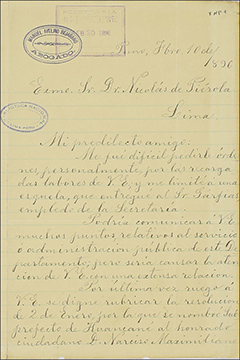 MANUEL AVELINO BEJARANO
ABOGADO
Puno, Fbro. 10 de/
1896
Exmo. Sr. Dr. Nicolás de Piérola
Lima.
Mi predilecto amigo.
Me fué difícil pedirle órde-
nes, personalmente, por las recarga-
das labores de V. E. y me limité a una
esquela, que entregué al Sr.
empleado de la Secretaría.
Podría comunicar á V. E.
muchos puntos relativos al servicio
ó administración pública de este De-
partamento; pero sería cansar la aten-
cion de V. E. en una extensa relación.
Por última vez ruego á
V. E. se digne rubricar la resolución
de 2 de Enero, por la que se nombre Sub
prefecto de Huancané al honrado
ciudadano D. Narciso Maximiliano